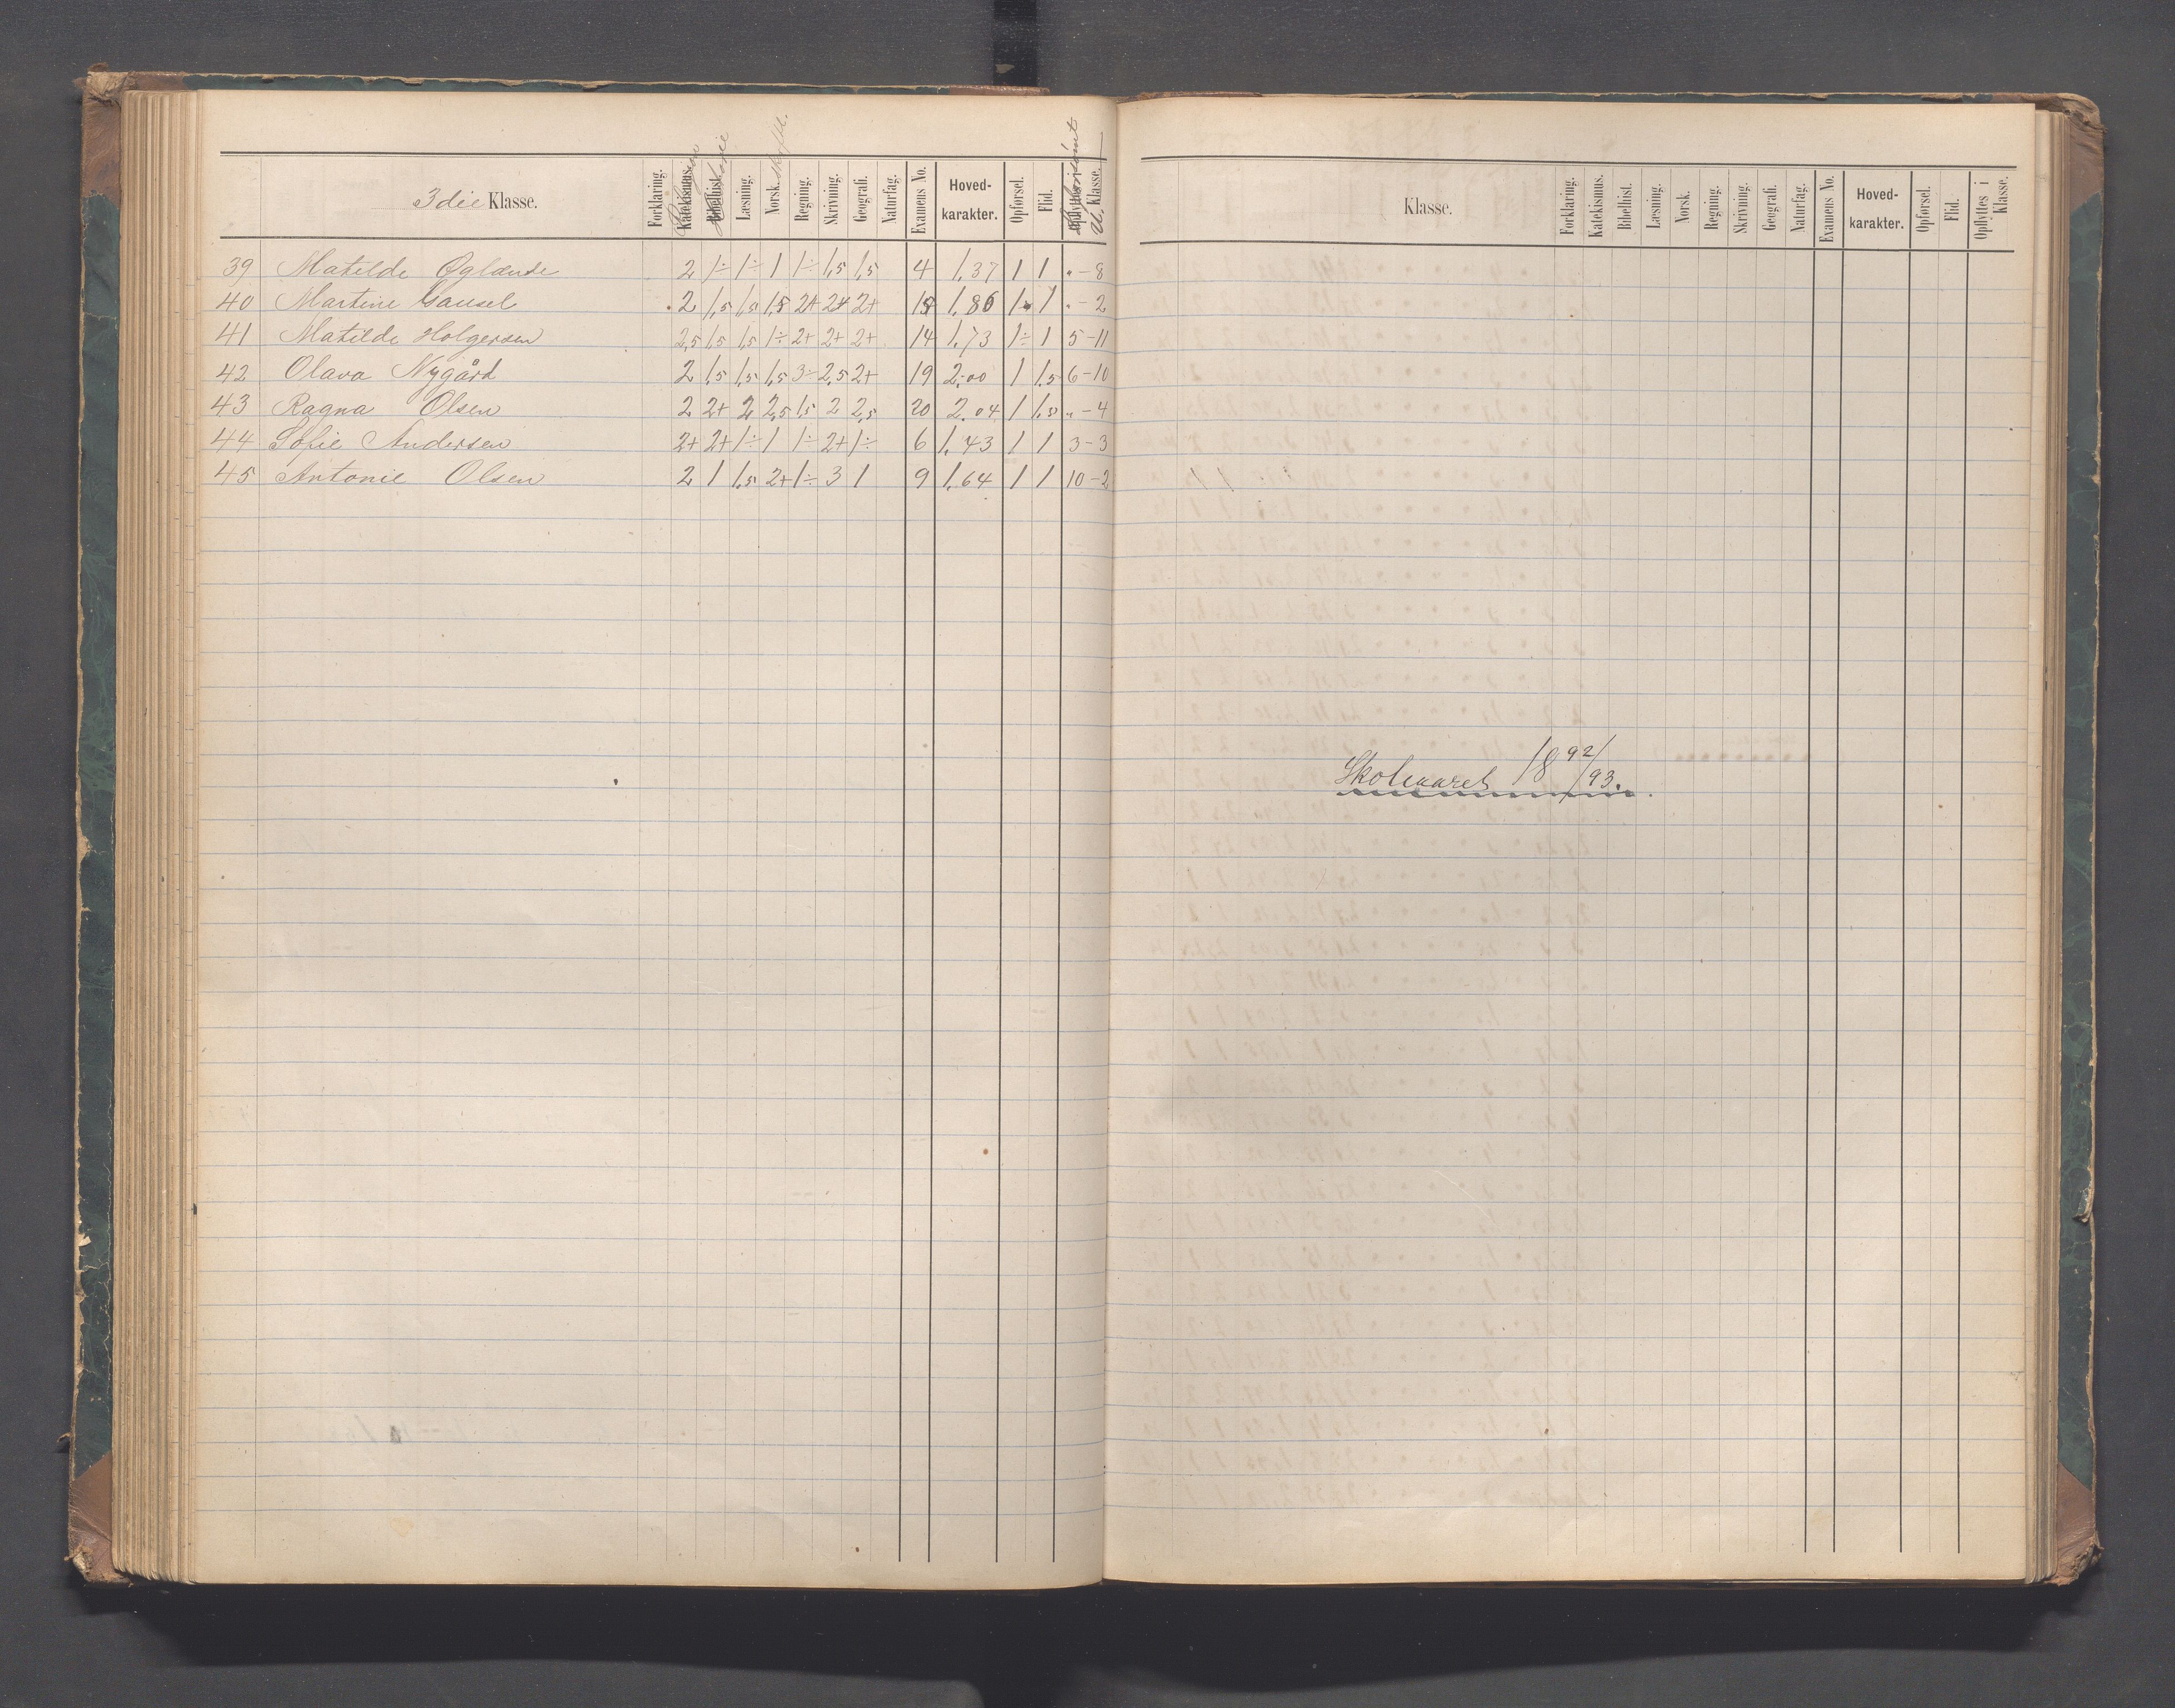 3die Klasse. Forklaring. Katekismus. Religion Bibelhist. Historie Læsning. Norsk. skriftl. Regning. Skrivning. Geografi. Naturfag. Examens No. Hoved-karakter. Opførsel. Flid. Klasse.
39 Matilde Øglænde 2 1÷ 1÷ 1 1÷ 1,5 1,5 4 1,37 1 1 „-8
40 Martine Gausel 2 1,5 1,5 1,5 2+ 2+ 2+ 15 1,86 1 1 „-2
41 Matilde Holgersen 2,5 1,5 1,5 1÷ 2+ 2+ 2+ 14 1,73 1÷ 1 5-11
42 Olava Nygård 2 1,5 1,5 1,5 3÷ 2,5 2+ 19 2,00 1 1,5 6-10
43 Ragna Olsen 2 2+ 2 2,5 1,5 2 2,5 20 2,04 1 1,5 „-4
44 Sofie Andersen 2+ 2+ 1÷ 1 1÷ 2+ 1÷ 6 1,43 1 1 3-3
45 Antonie Olsen 2 1 1,5 2+ 1÷ 3 1 9 1,64 1 1 10-2
Klasse. Forklaring. Katekismus. Bibelhist. Læsning. Norsk. Regning. Skrivning. Geografi. Naturfag. Examens No. Hoved-karakter. Opførsel. Flid. Opflyttes i Klasse.
Skoleaaret 1892/93.